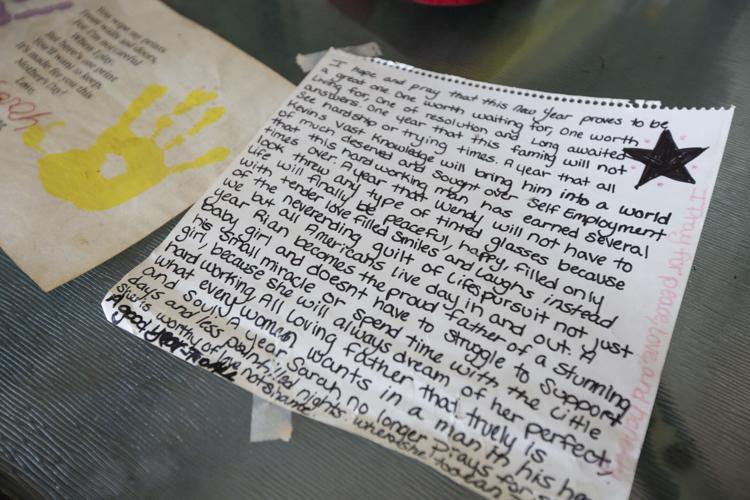 You
fingerprints
From
and doors,
careful
When I play.
But here's one print
You'll want to keep,
It's made for you this
Mother's Day!
Love,
I hope and pray that this New year proves to be
a great one. One worth waiting for, One worth
Living for, one of resolution and Long awaited
answers. One year that this faming will not
See hardship or trying times. A year that all
Kevins vast knowledge will bring him into a world
of much deserved and Sought over Self Employment
that this hard working man has earned several
times over. A year that Wendy will not have to
look threw any type of tinted glasses because
Life will finally be peaceful, happy, filled only
with of the tender love filled Smiles and Laughs instead
we but neverending guilt of Lifes pursuit not just
year but all Americans live day in and out. A
Baby Rian becomes the proud father of a stunning
his girl and doesnt have to struggle to Support
girl, small miracle or spend time with the Little
hard because she will always dream of her perfect,
what working All Loving father that truely Is
and every women wants in a man in his he
days Souly. A year Sarah no longer Prays for
She is and less painfilled nights when she
A worthy of love not shame
A good year
I Pray for peace, Love and